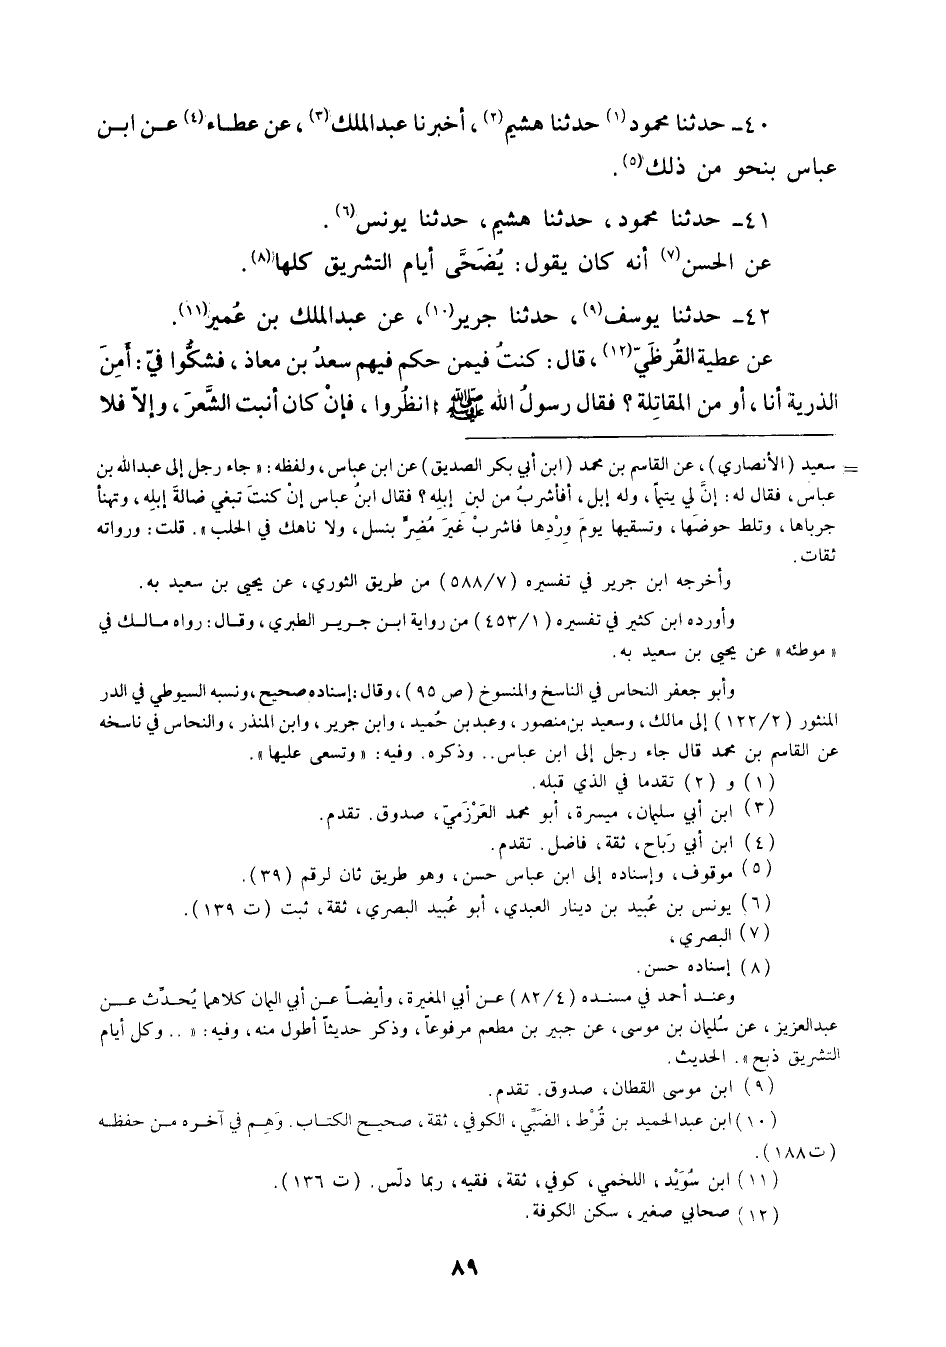 ٤٠ــ حدثنا محمود(١) حدثنا هشيم(٢)، أخبرنا عبدالملك(٣)، عن عطاء(٤) عن ابن
عباس بنحو من ذلك(٥).
٤١ــ حدثنا محمود، حدثنا هشيم، حدثنا يونس(٦).
عن الحسن(٧) أنه كان يقول: يُضَحَّى أيام التشريق كلها(٨).
٤٢ــ حدثنا يوسف(٩)، حدثنا جرير(١٠)، عن عبدالملك بن عُمير(١١).
عن عطية القُرظَيّ(١٢)، قال: كنتُ فيمن حكم فيهم سعدُ بن معاذ، فشكُّوا فيّ: أَمِنَ
الذرية أنا، أو من المقاتِلة؟ فقال رسولُ الله ﷺ: انظُروا، فإنْ كان أنبت الشَّعرَ، وإلاّ فلا
= سعيد (الأنصاري)، عن القاسم بن محمد (ابن أبي بكر الصديق) عن ابن عباس، ولفظه: «جاء رجل إلى عبدالله بن
عباس، فقال له: إنَّ لي يتيماً، وله إبل، أفأشربُ من لبن إبله؟ فقال ابنُ عباس إنْ كنتَ تبغي ضالةَ إبله، وتهنأ
جرباها، وتلط حوضها، وتسقيها يومَ وِرْدِها فاشربْ غيرَ مُضرٍّ بنسل، ولا ناهك في الحلب». قلت: ورواته
ثقات.
وأخرجه ابن جرير في تفسيره (٥٨٨/٧) من طريق الثوري، عن يحيى بن سعيد به.
وأورده ابن كثير في تفسيره (٤٥٣/١) من رواية ابن جرير الطبري، وقال: رواه مالك في
«موطئه» عن يحيى بن سعيد به.
وأبو جعفر النحاس في الناسخ والمنسوخ (ص ٩٥)، وقال: إسناده صحيح، ونسبه السيوطي في الدر
المنثور (١٢٢/٢) إلى مالك، وسعيد بن منصور، وعبد بن حُميد، وابن جرير، وابن المنذر، والنحاس في ناسخه
عن القاسم بن محمد قال جاء رجل إلى ابن عباس.. وذكره. وفيه: «وتسعى عليها».
(١) و (٢) تقدما في الذي قبله.
(٣) ابن أبي سليمان، ميسرة، أبو محمد العَرْزَميّ، صدوق. تقدم.
(٤) ابن أبي رَباح، ثقة، فاضل. تقدم.
(٥) موقوف، وإسناده إلى ابن عباس حسن، وهو طريق ثان لرقم (٣٩).
(٦) يونس بن عُبيد بن دينار العبدي، أبو عُبيد البصري، ثقة، ثبت (ت ١٣٩).
(٧) البصري،
(٨) إسناده حسن.
وعند أحمد في مسنده (٨٢/٤) عن أبي المغيرة، وأيضاً عن أبي اليمان كلاهما يُحدِّث عن
عبدالعزيز، عن سُليمان بن موسى، عن جبير بن مطعم مرفوعاً، وذكر حديثاً أطول منه، وفيه: «.. وكل أيام
التشريق ذبح». الحديث.
(٩) ابن موسى القطان، صدوق. تقدم.
(١٠) ابن عبدالحميد بن قُرْط، الضَبِّي، الكوفي، ثقة، صحيح الكتاب. وَهِم في آخره من حفظه
(ت١٨٨).
(١١) ابن سُوَيْد، اللخمي، كوفي، ثقة، فقيه، ربما دلّس. (ت ١٣٦).
(١٢) صحابي صغير، سكن الكوفة.
٨٩